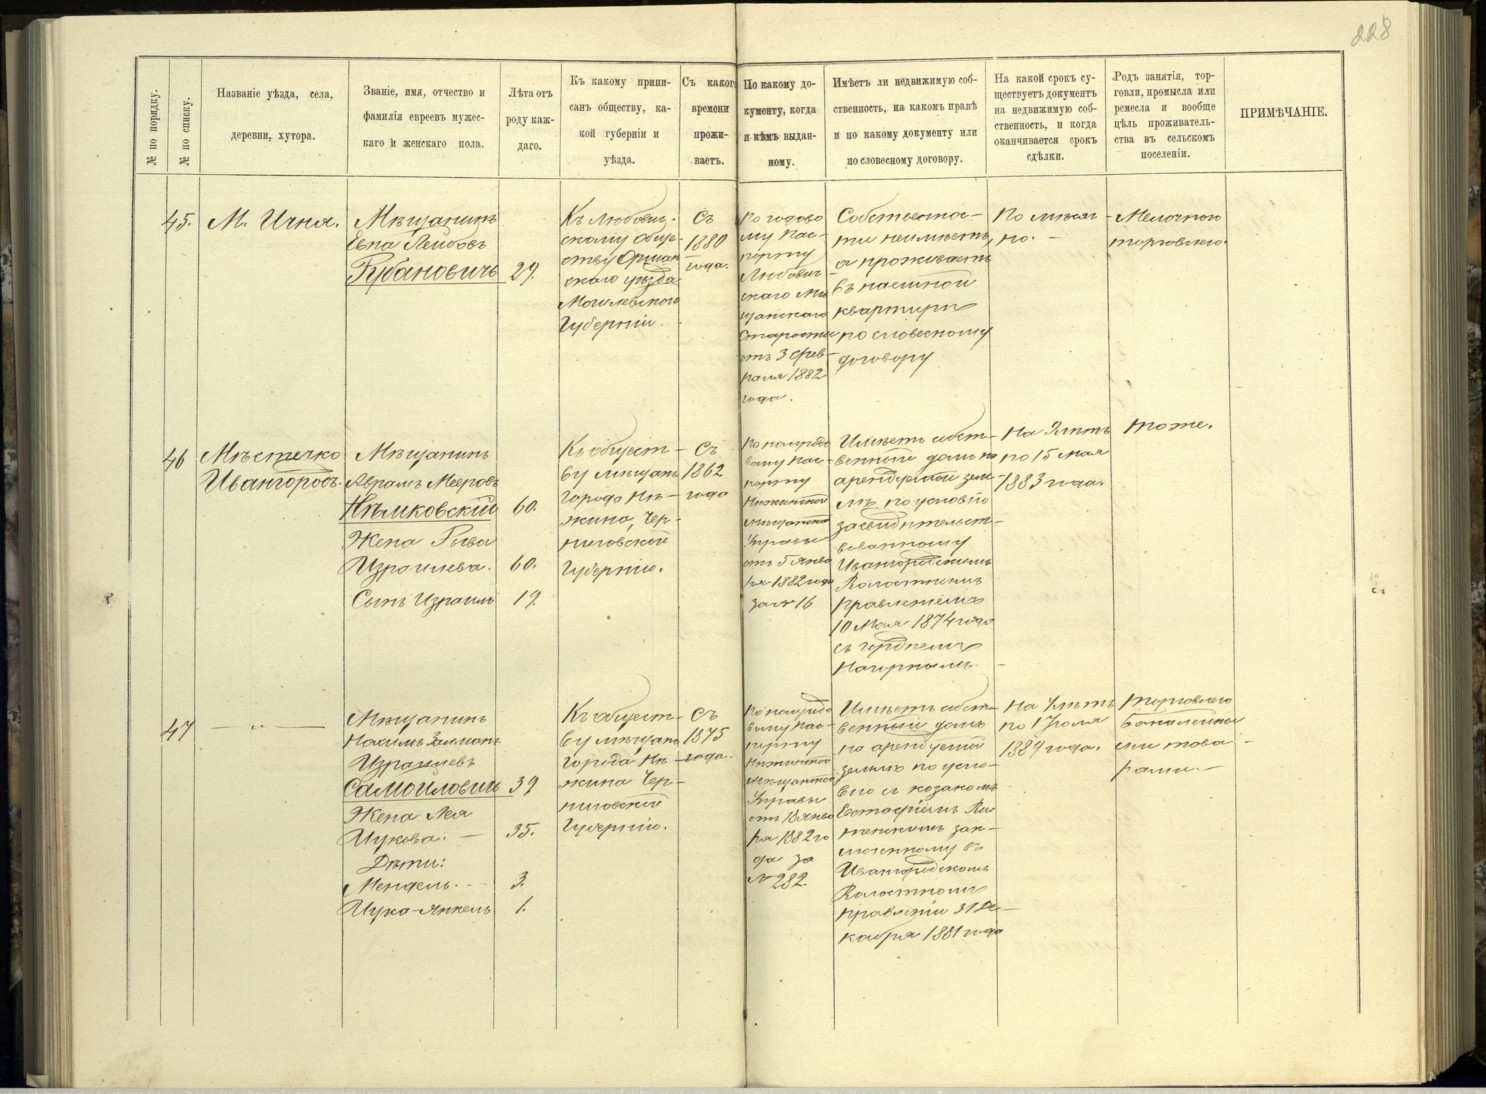 228
№ по порядку.
№ по списку.
Названіе уѣзда, села,
деревни, хутора.
Званіе, имя, отчество и
фамилія евреевъ мужес-
каго и женскаго пола.
Лѣта отъ
роду каж-
даго.
Къ какому припи-
санъ обществу, ка-
кой губерніи и
уѣзда.
Съ какого
времени
прожи-
ваетъ.
По какому до-
кументу, когда
и кѣмъ выдан-
ному.
Имѣетъ ли недвижимую соб-
ственность, на какомъ правѣ
и по какому документу или
по словесному договору.
На какой срокъ су-
ществуетъ документъ
на недвижимую соб-
ственность, и когда
оканчивается срокъ
сдѣлки.
Родъ занятія, тор-
говли, промысла или
ремесла и вообще
цѣль проживатель-
ства въ сельскомъ
поселеніи.
ПРИМѢЧАНІЕ.
45.
М. Ичня.
Мѣщанинъ
Лейбовъ
Рубановичъ
29.
Къ Любович-
скому обще-
ству Оршан
скаго уѣзда
Могилевской
Губерніи.
Съ
1880
года.
По годово
му пас-
порту
Любович-
скаго мѣ
щанскаго
Старосты
отъ 3 Фев-
раля 1882
года.
Собственнос-
ти не имѣетъ,
а проживаетъ
въ наемной
квартирѣ
по словесному
договору
Мелочною
торговлею.
46
Мѣстечко
Ивангородъ.
Мѣщанинъ
Аврамъ Мееровъ
Нѣмковскій
60.
Жена Рива
Израилева.
60.
Сынъ Израиль
19.
Къ общест-
ву мѣщанъ
города Нѣ-
жина, Чер-
ниговской
Губерніи.
Съ
1862
года
По полугодо
вому пас-
порту
Нѣжинской
мѣщанской
Управы
отъ 5 Янва
ря 1882 года
за № 16
Имѣетъ собст-
венный домъ на
арендуемой зем-
лѣ по условію
засвидѣтельст-
вованному
Ивангородскимъ
Волостнымъ
Правленіемъ
10 Мая 1874 года
съ
На 9 лѣтъ
по 15 Мая
1883 года.
тоже.
47
— " —
Мѣщанинъ
Нохимъ Залманъ
Израилевъ
Самойловичъ
39
Жена Лея
Ицкова. —
35.
Дѣти:
Мендель. —
3.
Ицко-Янкель
1.
Къ общест-
ву мѣщанъ
города Нѣ-
жина Чер-
ниговской
Губерніи.
Съ
1875
года.
По полугодо
вому пас-
порту
Нѣжинской
Мѣщанской
Управы
отъ 18 Янва
ря 1882 го
да за
№ 282.
Имѣетъ собст-
венный домъ
на арендуемой
землѣ по усло-
вію съ козакомъ
Евстафіемъ
зак-
люченному въ
Ивангородскомъ
Волостномъ
Правленіи 31 Де-
кабря 1881 года
по 1 Іюля
Торговлею
бакалейны
ми това-
рами. —